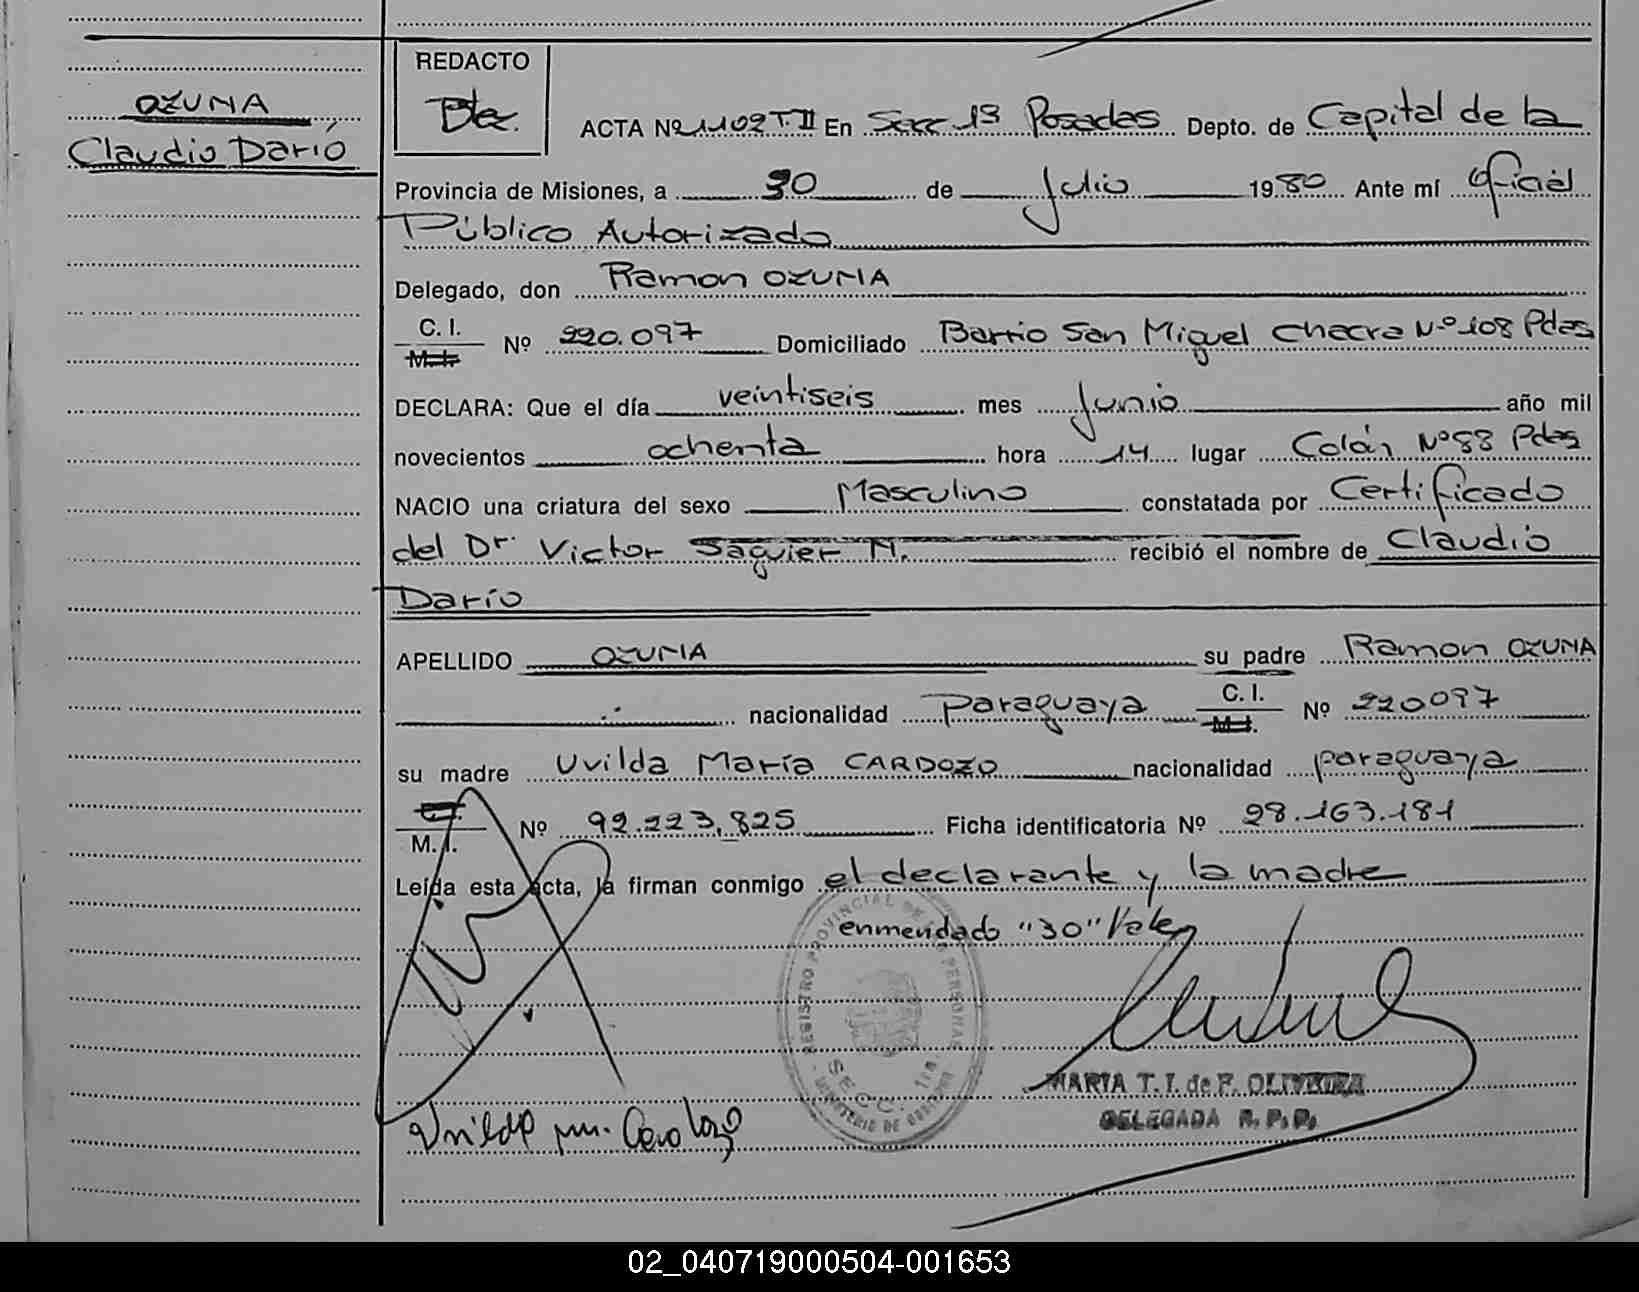 REDACTO
OZUNA
Claudio Darió
ACTA Nº 1102 T II En Secc 1ª Posadas Depto. de Capital de la
Provincia de Misiones, a 30 de Julio 1980 Ante mí Oficial
Público Autorizado
Delegado, don Ramon OZUNA
C. I.
M. I.
Nº 220.097 Domiciliado Barrio San Miguel Chacra Nº 108 Pdas
DECLARA: Que el día veintiseis mes Junio año mil
novecientos ochenta hora 14 lugar Colón Nº 83 Pdas
NACIO una criatura del sexo Masculino constatada por Certificado
del Dr. Victor Saguier M. recibió el nombre de Claudio
Darío
APELLIDO OZUNA su padre Ramon OZUNA
nacionalidad Paraguaya C. I. M. I. Nº 220097
su madre Uvilda María CARDOZO nacionalidad paraguaya
M. I. Nº 92.223.825 Ficha identificatoria Nº 28.163.181
Leída esta acta, la firman conmigo el declarante y la madre
enmendado "30" Vale
REGISTRO PROVINCIAL DE LAS PERSONAS
SECC. 1ra
MINISTERIO DE GOBIERNO
MARIA T. I. de F. OLIVEIRA
DELEGADA R. P. P.
02_040719000504-001653